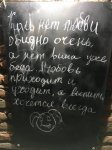 Когда нет любви
обидно очень,
а нет вина уже
беда. Любовь
приходит и
уходит, а выпить
хочется всегда